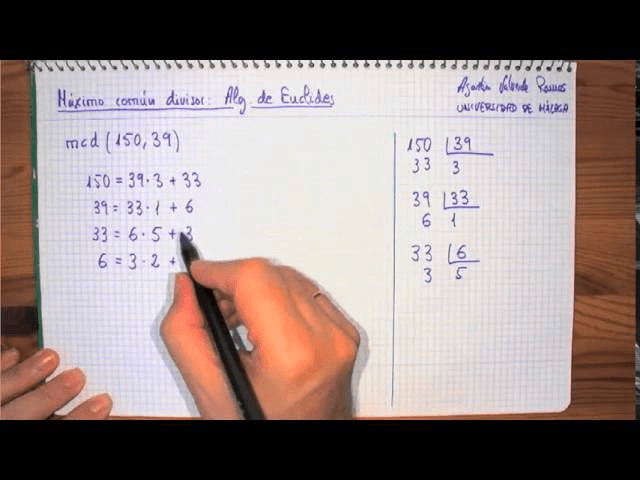 Máximo común divisor: Alg. de Euclides
Agustín Valverde Ramos
UNIVERSIDAD DE MÁLAGA
mcd (150, 39)
150 = 39·3 + 33
39 = 33·1 + 6
33 = 6·5 + 3
6 = 3·2 +
150 39
33 3
39 33
6 1
33 6
3 5